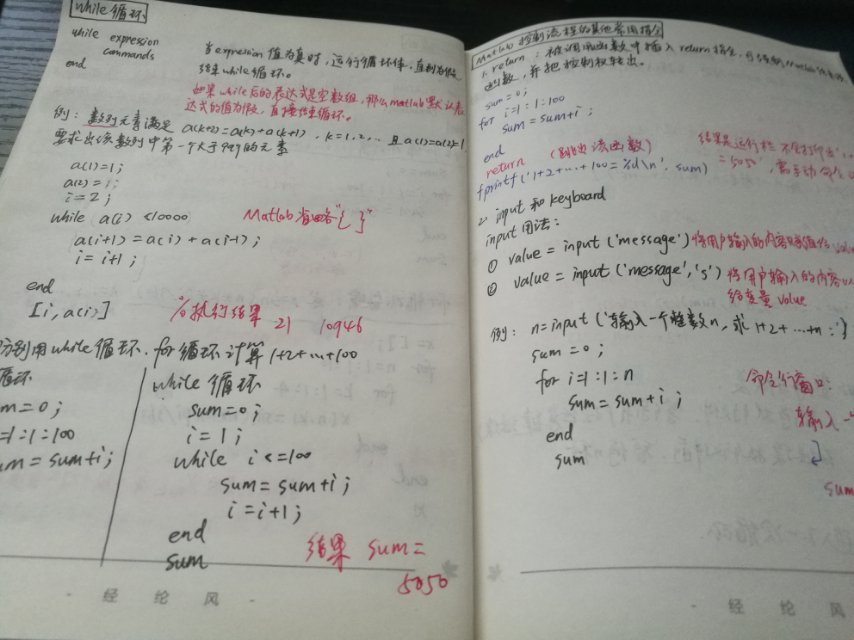 while 循环
while expression
commands
end
当 expression 值为真时，运行循环体，直到为假
结束 while 循环。
如果 while 后的表达式是空数组，那么 matlab 默认表
达式的值为假，直接结束循环。
例：数列元素满足 a(k+2)=a(k)+a(k+1)，k=1,2,… 且 a(1)=a(2)=1
要求出该数列中第一个大于 的元素
a(1)=1;
a(2)=1;
i=2;
while a(i)<10000
Matlab 省略"{ }"
a(i+1)=a(i)+a(i-1);
i=i+1;
end
[i,a(i)]
%执行结果 21 10946
别用 while 循环、for 循环计算 1+2+…+100
循环
m=0;
=1:1:100
um=sum+i;
while 循环
sum=0;
i=1;
while i<=100
sum=sum+i;
i=i+1;
end
sum
结果 sum=
5050
经 纶 风
Matlab 控制流程的其他常用指令
1. return：被调用函数中插入 return 指令，
函数，并把控制权转出。
sum=0;
for i=1:1:100
sum=sum+i;
end
return （跳出该函数）
fprintf('1+2+…+100=%d\n', sum)
结果是运行栏
=5050'，
2. input 和 keyboard
input 用法：
① value=input('message') 将用户输入的内容赋值给
② value=input('message','s') 将用户输入的内容以
给变量 value
例： n=input('输入一个整数n，求1+2+…+n:')
sum=0;
for i=1:1:n
sum=sum+i;
end
sum
命令行窗口：
输入一
sum
经 纶 风